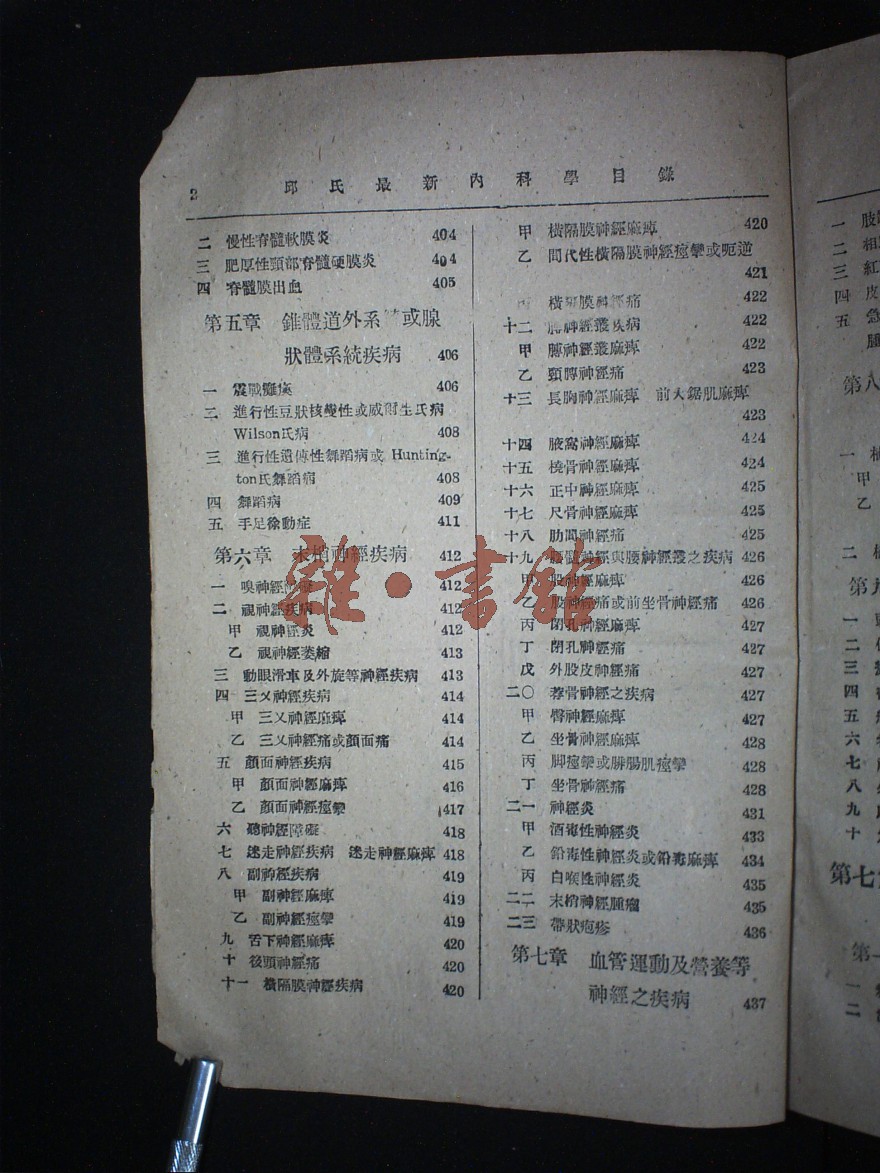 2
邱氏最新內科學目錄
二 慢性脊髓軟膜炎 404
三 肥厚性頸部脊髓硬膜炎 404
四 脊髓膜出血 405
第五章 錐體道外系 或腺
狀體系統疾病 406
一 震戰癱瘓 406
二 進行性豆狀核變性或威爾生氏病
Wilson氏病 408
三 進行性遺傳性舞蹈病或 Hunting-
ton氏舞蹈病 408
四 舞蹈病 409
五 手足徐動症 411
第六章 末梢神經疾病 412
一 嗅神經 412
二 視神經疾病 412
甲 視神經炎 412
乙 視神經萎縮 413
三 動眼滑車及外旋等神經疾病 413
四 三叉神經疾病 414
甲 三叉神經麻痺 414
乙 三叉神經痛或顏面痛 414
五 顏面神經疾病 415
甲 顏面神經麻痺 416
乙 顏面神經痙攣 417
六 聽神經障礙 418
七 迷走神經疾病 迷走神經麻痺 418
八 副神經疾病 419
甲 副神經麻痺 419
乙 副神經痙攣 419
九 舌下神經麻痺 420
十 後頭神經痛 420
十一 橫隔膜神經疾病 420
甲 橫隔膜神經麻痺 420
乙 間代性橫隔膜神經痙攣或呃逆
421
丙 橫隔膜神經痛 422
十二 膊神經叢疾病 422
甲 膊神經叢麻痺 422
乙 頸膊神經痛 423
十三 長胸神經麻痺 前大鋸肌麻痺
423
十四 腋窩神經麻痺 424
十五 橈骨神經麻痺 424
十六 正中神經麻痺 425
十七 尺骨神經麻痺 425
十八 肋間神經痛 425
十九 腰髓神經與腰神經叢之疾病 426
甲 股神經麻痺 426
乙 股神經痛或前坐骨神經痛 426
丙 閉孔神經麻痺 427
丁 閉孔神經痛 427
戊 外股皮神經痛 427
二〇 薦骨神經之疾病 427
甲 臀神經麻痺 427
乙 坐骨神經麻痺 428
丙 脚痙攣或腓腸肌痙攣 428
丁 坐骨神經痛 428
二一 神經炎 431
甲 酒毒性神經炎 433
乙 鉛毒性神經炎或鉛毒麻痺 434
丙 白喉性神經炎 435
二二 末梢神經腫瘤 435
二三 帶狀疱疹 436
第七章 血管運動及營養等
神經之疾病 437
雜·書館
一 肢
二
三 紅
四 皮
五 急
第八
一
甲
乙
二
第九
一
二
三
四
五
六
七
八
九
十
第七
第一
一
二